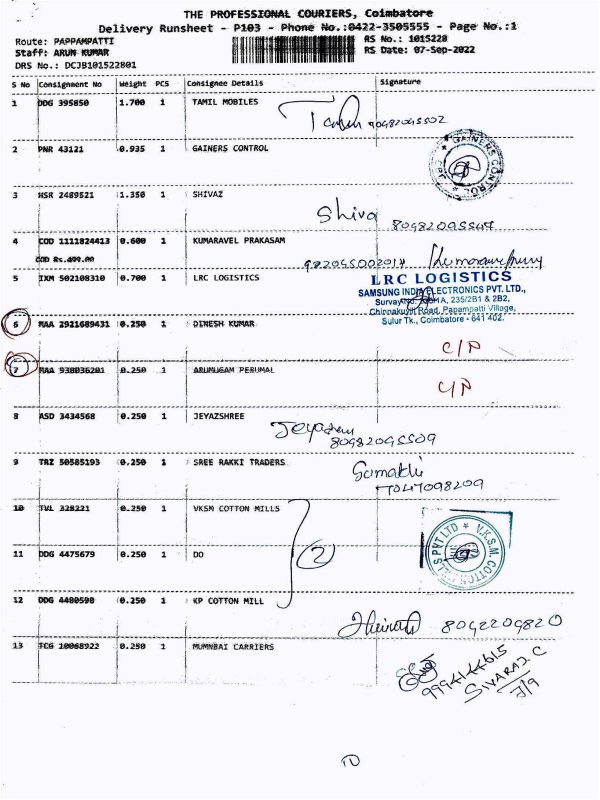 THE PROFESSIONAL COURIERS, Coimbatore
Delivery Runsheet - P103 - Phone No.:0422-3505555 - Page No.:1
Route: PAPPAMPATTI
RS No.: 1015228
Staff: ARUN KUMAR
RS Date: 07-Sep-2022
DRS No.: DCJB101522801
S No Consignment No Weight PCS Consignee Details Signature
1 DDG 395850 1.700 1 TAMIL MOBILES
2 PNR 43121 0.935 1 GAINERS CONTROL
GAINERS CONTROL
CBE
3 HSR 2489521 1.350 1 SHIVAZ
Shiva
4 COD 1111824413 0.600 1 KUMARAVEL PRAKASAM
COD Rs.499.00
5 IXM 502108310 0.700 1 LRC LOGISTICS
LRC LOGISTICS
SAMSUNG INDIA ELECTRONICS PVT. LTD.,
235/2B1 & 2B2,
Chinnakuyili Road, Papampatti Village,
Sulur Tk., Coimbatore - 641 402.
6 MAA 2921689431 0.250 1 DINESH KUMAR
7 MAA 938036201 0.250 1 ARUMUGAM PERUMAL
8 ASD 3434568 0.250 1 JEYAZSHREE
9 TRZ 50585193 0.250 1 SREE RAKKI TRADERS
10 TVL 328221 0.250 1 VKSM COTTON MILLS
11 DDG 4475679 0.250 1 DO
2
V.K.S.M. COTTON MILLS PVT LTD
12 DDG 4480598 0.250 1 KP COTTON MILL
8092209820
13 TCG 10068922 0.250 1 MUMNBAI CARRIERS
9994144615
SIVARAJ. C
7/9